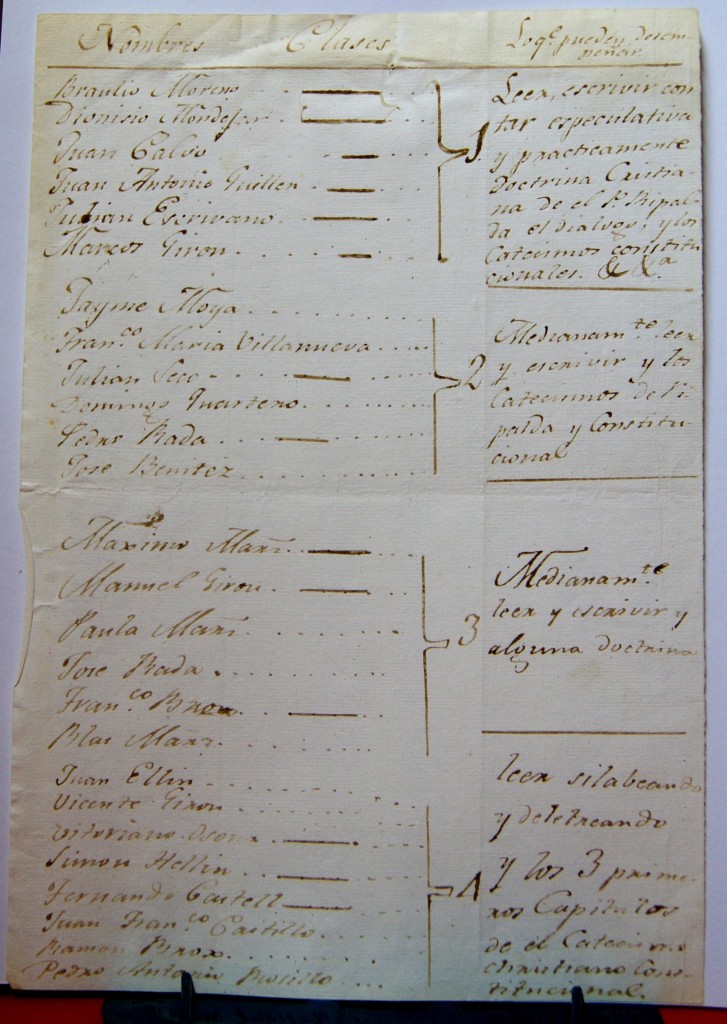 Nombres Clases Lo q.e pueden desem-
peñar.
Braulio Moreno
Dionisio Mondejar
Juan Calvo
Juan Antonio Guillen
Julian Escrivano
Marcos Giron
1.
Leer, escrivir con
tar especulativa
y practicamente
Doctrina Cristia-
na de el P. Ripal-
da el dialogo, y los
Catecismos constitu
cionales. &&a
Jayme Moya
Fran.co Maria Villanueva
Julian Seco
Domingo Quartero
Pedro Rada
Jose Benitez
2
Medianam.te leer
y escrivir y los
Catecismos de Ri-
palda y Constitu-
cional
Maximo Marz
Manuel Giron
Paula Marz
Jose Rada
Fran.co Brox
Blas Marz
3
Medianam.te
leer y escrivir y
alguna doctrina
Juan Ellin
Vicente Giron
Vitoriano
Simon Hellin
Fernando Castell
Juan Fran.co Castillo
Ramon Brox
Pedro Antonio Rosillo
4
leer silabeando
y deletreando
y los 3 prime-
ros Capitulos
de el Catecismo
christiano Cons-
titucional.